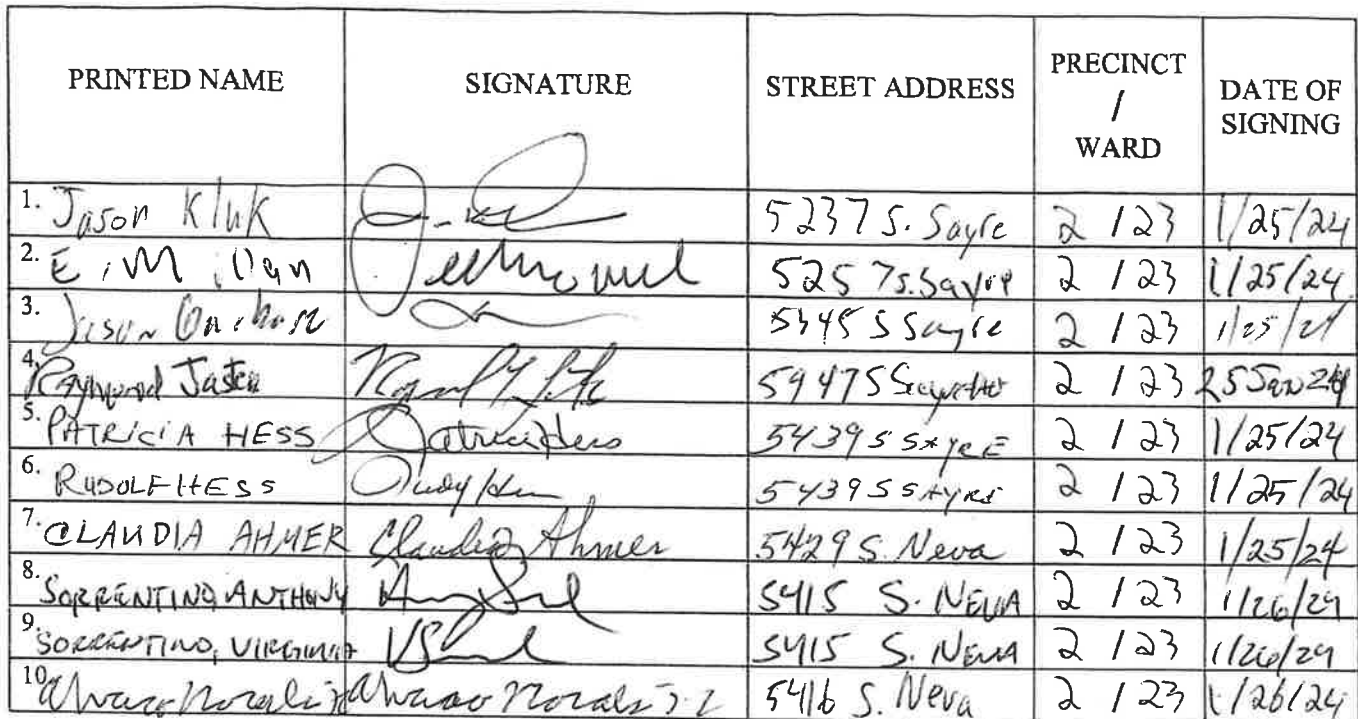 PRINTED NAME SIGNATURE STREET ADDRESS PRECINCT / WARD DATE OF SIGNING
1. Jason Kluk 5237 S. Sayre 2 / 23 1/25/24
2. E. Millan 5257 S. Sayre 2 / 23 1/25/24
3. Jason 5345 S Sayre 2 / 23 1/25/24
4. Raymond 5947 S 2 / 23 25 Jan 24
5. PATRICIA HESS Patricia Hess 5439 S SAyrE 2 / 23 1/25/24
6. RUDOLF HESS Rudy Hess 5439 S SAyre 2 / 23 1/25/24
7. CLAUDIA AHMER Claudia Ahmer 5429 S. Neva 2 / 23 1/25/24
8. SORRENTINO, ANTHONY 5415 S. NEVA 2 / 23 1/26/24
9. SORRENTINO, VIRGINIA 5415 S. NEVA 2 / 23 1/26/24
10. Alvaro Morales Alvaro Morales 5416 S. Neva 2 / 23 1/26/24